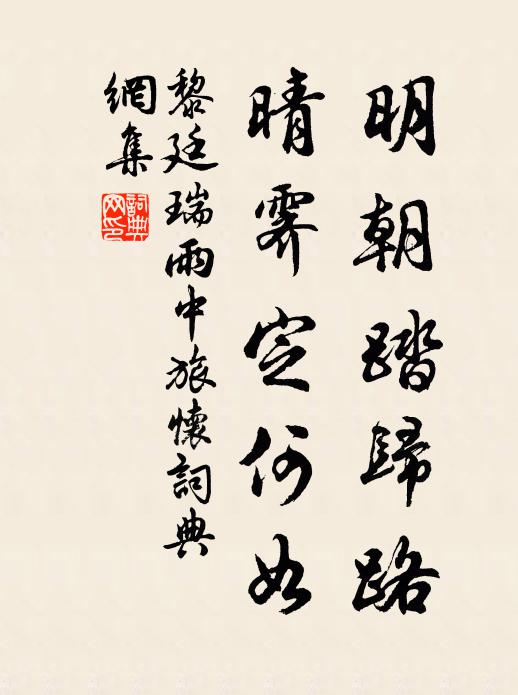 明朝踏歸路
晴霽定何如
黎廷瑞雨中旅懷詞典
網集
詞典網印